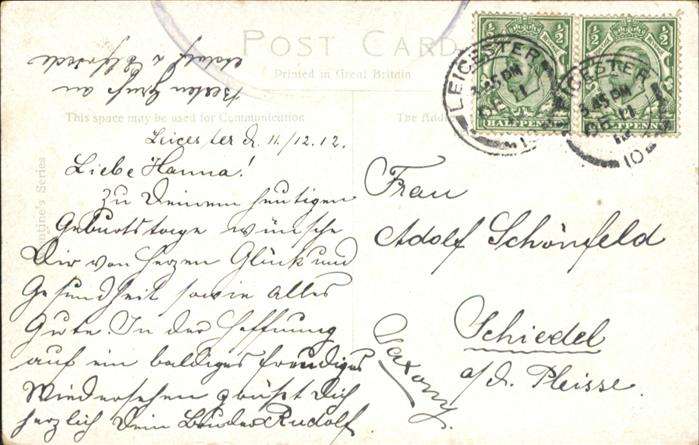 POST CARD
Printed in Great Britain
This space may be used for Communication
The Address
Valentine's Series
LEICESTER
DE 11
12
10
½ ½
HALFPENNY
LEICESTER
45 PM
DE 11
10
½ ½
HALFPENNY
Besten Gruß an
Adolf u. Elfriede
Leicester d. 11./12.12.
Liebe Hanna!
Zu Deinem heutigen
Geburtstage wünsche
Dir von Herzen Glück und
Gesundheit sowie alles
Gute. In der Hoffnung
auf ein baldiges freudiges
Wiedersehen grüßt Dich
herzlich Dein Bruder Rudolf
Frau
Adolf Schönfeld
Schiedel
a/d. Pleisse.
Saxony.